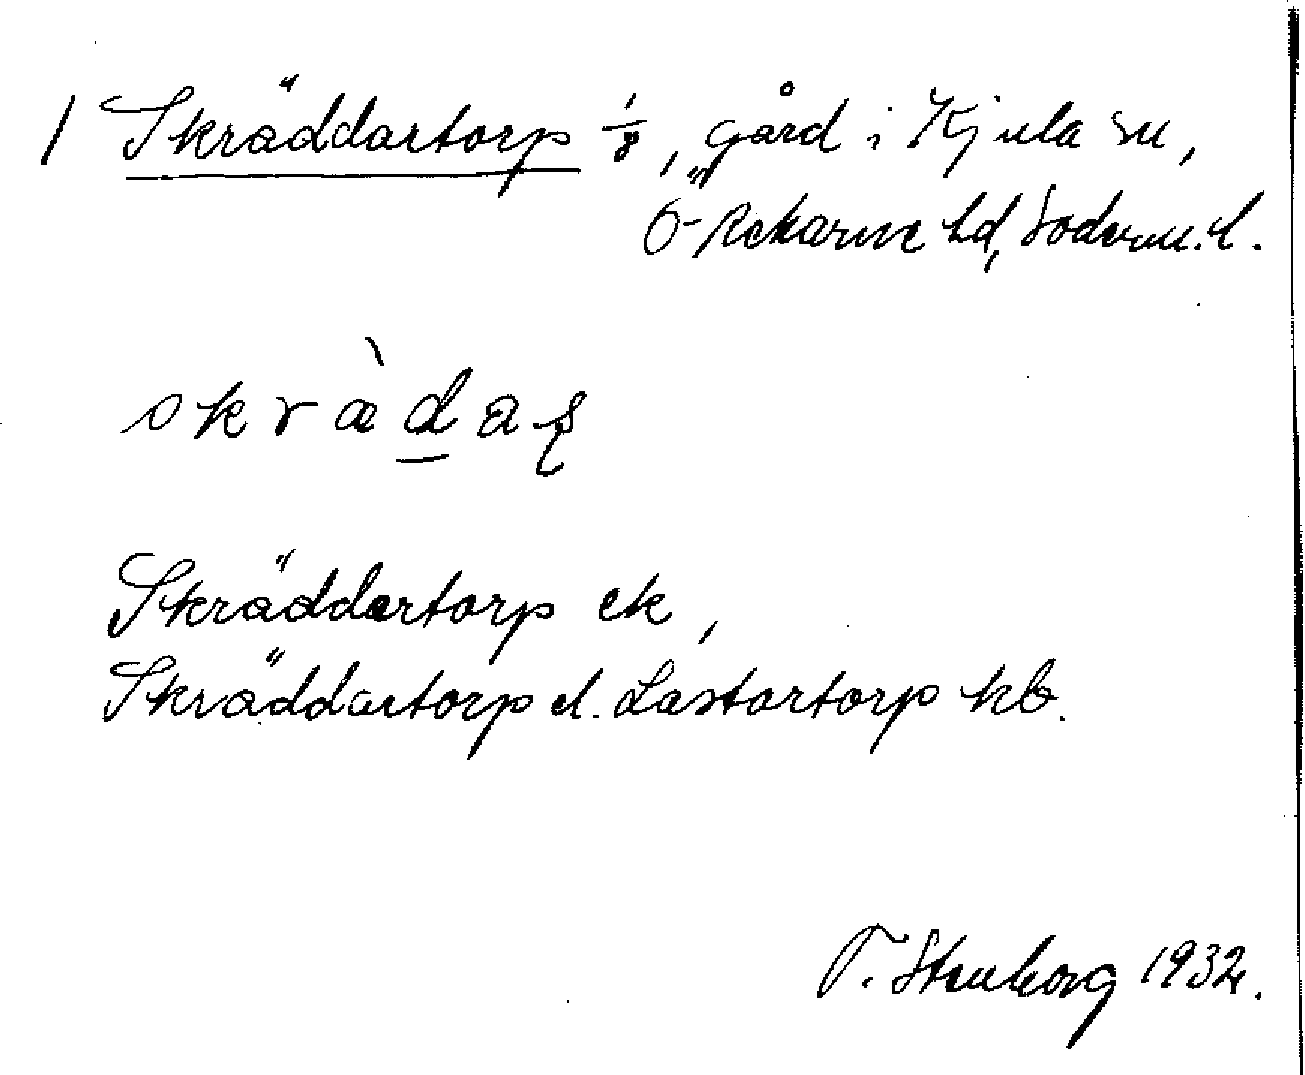 1 Skräddartorp 1/8, gård i Kjula sn,
Ö-Rekarne hd, Söderm. l.
skræ̀daş
Skräddartorp ek,
Skräddartorp el. Lastortorp kb.
T. Stenborg 1932.